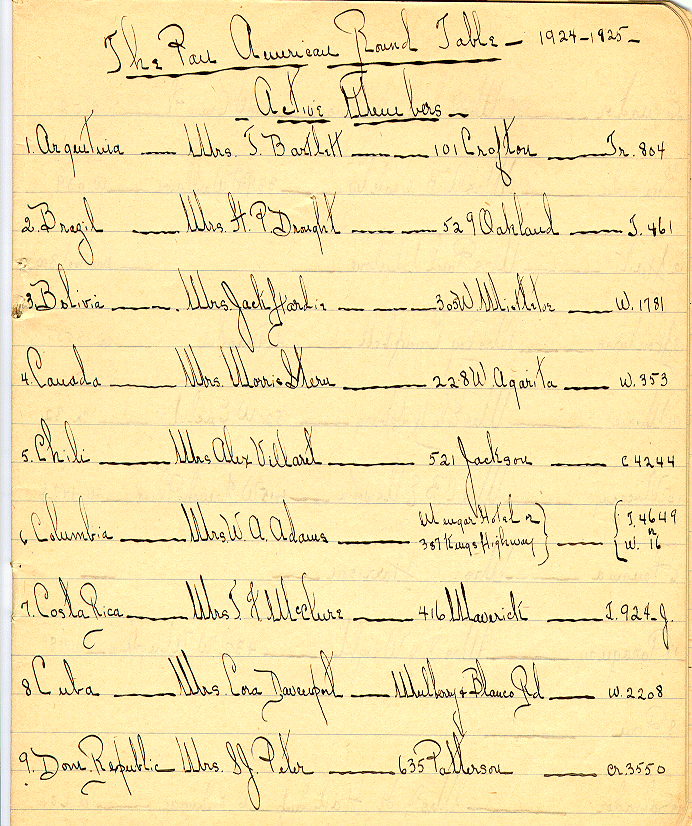 The Pan American Round Table - 1924-1925-
- Active Members -
1. Argentina — Mrs. T. Bartlett — 101 Crofton — Tr. 804
2. Brazil — Mrs. H. P. Drought — 529 Oakland — T. 461
3. Bolivia — Mrs. Jack Hardie — 303 W. Mistletoe — W. 1781
4. Canada — Mrs. Morris Stern — 228 W. Agarita — W. 353
5. Chili — Mrs Alex Villaret — 521 Jackson — C 4244
6 Columbia — Mrs W. A. Adams — Menger Hotel or } — { T. 4649
387 Kings Highway } or W. 16
7. Costa Rica — Mrs T. K. McClure — 416 Maverick — T. 924-J.
8 Cuba — Mrs. Cora Davenport — Mulberry & Blanco Rd — W. 2208
9. Dom. Republic Mrs. S.J. Peter — 635 Patterson — Cr. 3550